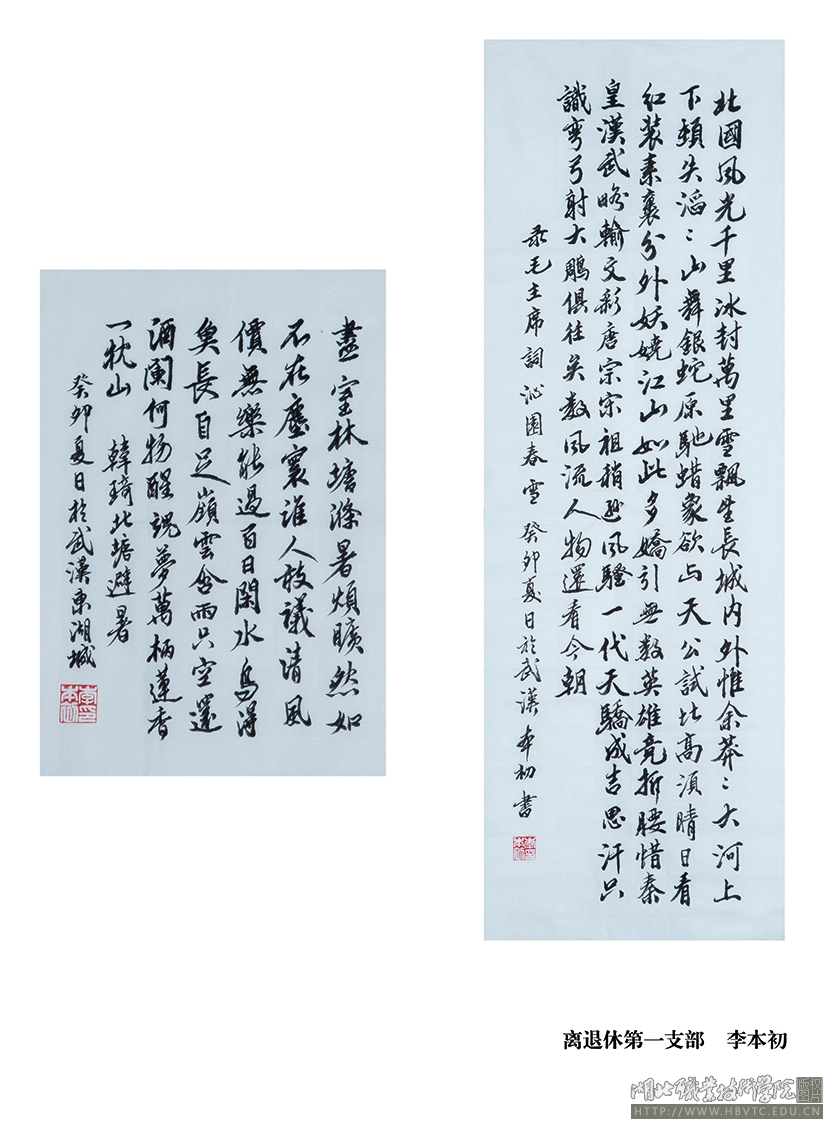 北國風光千里冰封萬里雪飄望長城内外惟余莽〻大河上
下頓失滔〻山舞銀蛇原馳蜡象欲与天公試比高須晴日看
红装素裹分外妖娆江山如此多嬌引無数英雄竞折腰惜秦
皇漢武略輸文彩唐宗宋祖稍遜風騷一代天驕成吉思汗只
識弯弓射大鵰俱往矣数風流人物還看今朝
录毛主席詞沁園春雪 癸卯夏日於武漢 本初書
盡室林塘滌暑煩曠然如
不在塵寰誰人敢議清風
價無樂能過百日閑水鳥得
魚長自足嶺雲含雨只空還
酒闌何物醒魂夢萬柄蓮香
一枕山 韓琦北塘避暑
癸卯夏日於武漢東湖城
离退休第一支部 李本初
湖北職業技術学院 版权图片
HTTP://WWW.HBVTC.EDU.CN